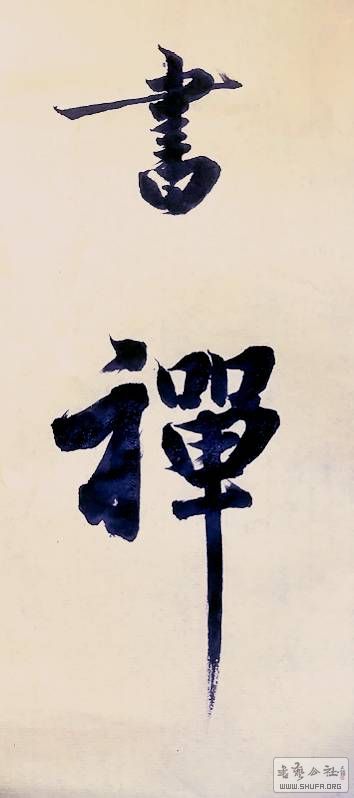 書
禪
书艺公社
WWW.SHUFA.ORG